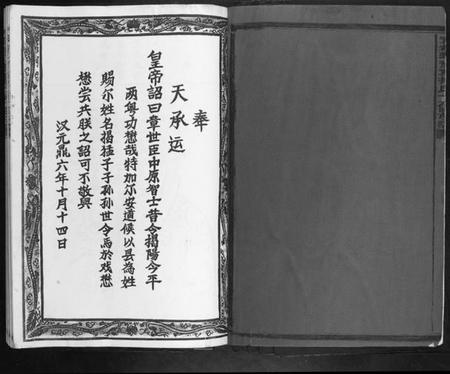 奉
天承运
皇帝詔曰章世臣中原智士昔令揭陽今平
两粤功懋哉特加尔安道侯以县為姓
賜尔姓名揭猛子子孫孫世令馬於戏懋
懋尝共朕之詔可不敬與
汉元鼎六年十月十四日